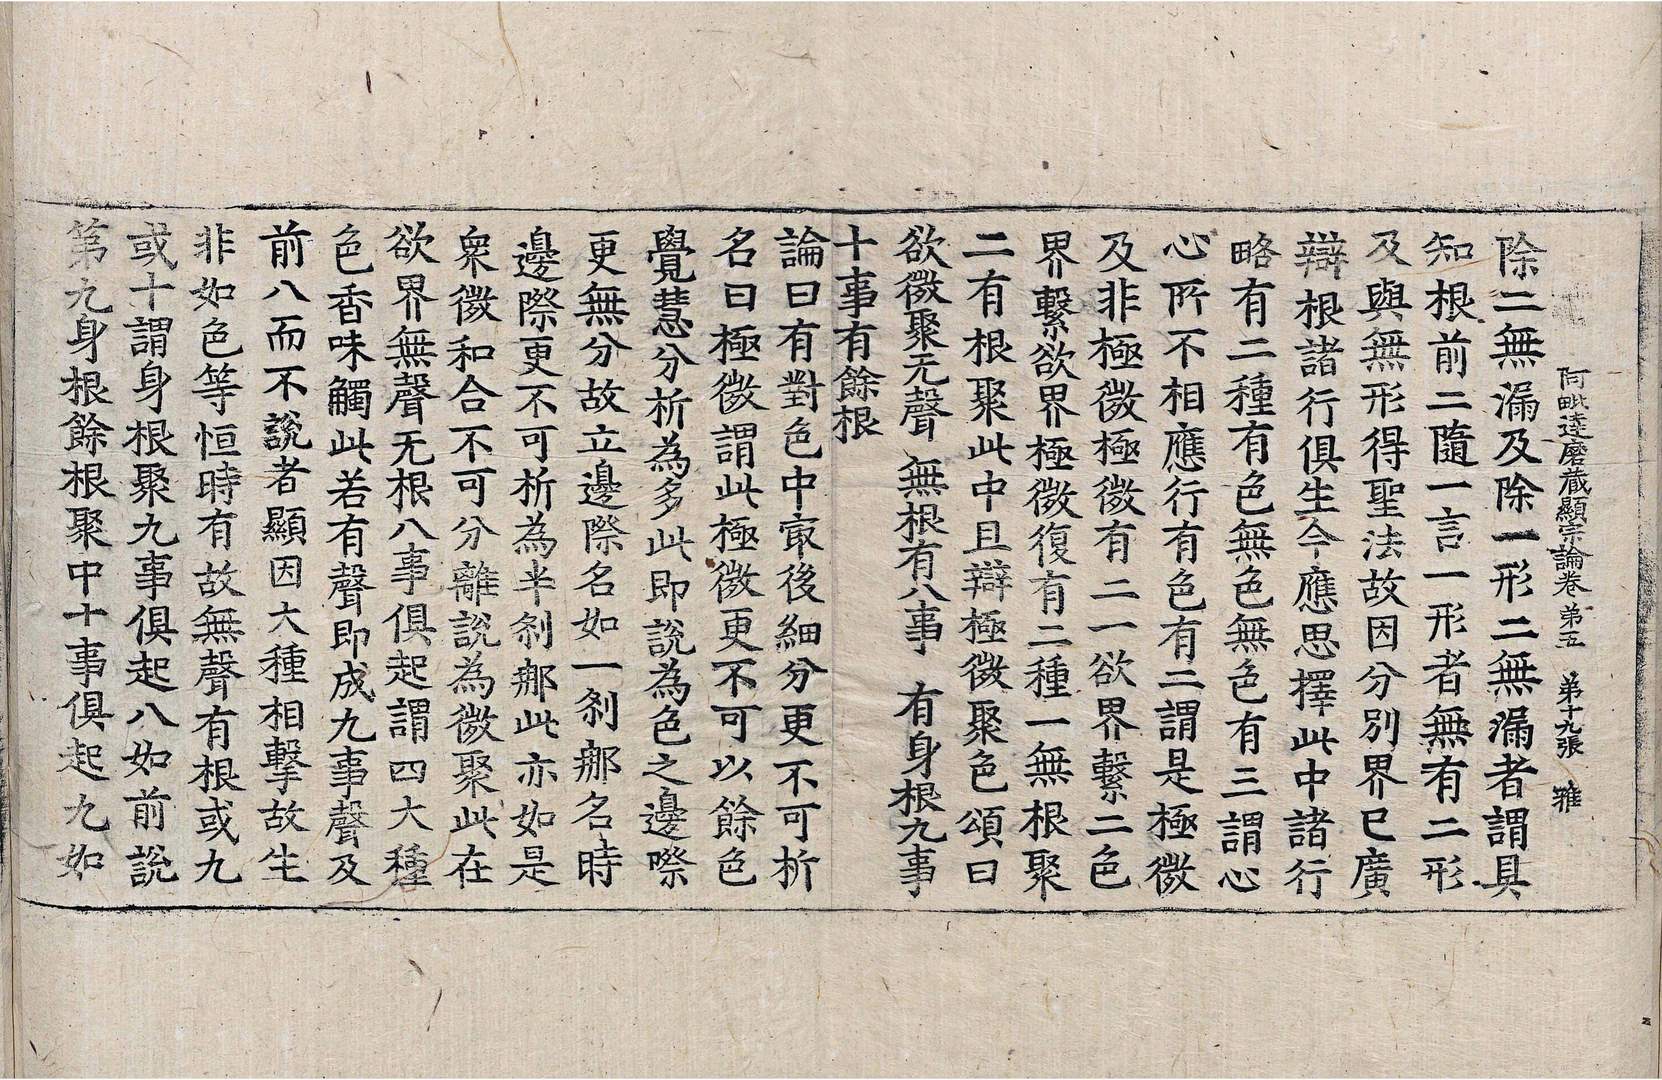 阿毗達磨蔵顯宗論卷第五 第十九張 雅
除二無漏及除一形二無漏者謂具
知根前二隨一言一形者無有二形
及與無形得聖法故因分別界已廣
辯根諸行俱生今應思擇此中諸行
略有二種有色無色無色有三謂心
心所不相應行有色有二謂是極微
及非極微極微有二一欲界繫二色
界繫欲界極微復有二種一無根聚
二有根聚此中且辯極微聚色頌曰
欲微聚无聲 無根有八事 有身根九事
十事有餘根
論曰有對色中㝡後細分更不可析
名曰極微謂此極微更不可以餘色
覺慧分析為多此即說為色之邊際
更無分故立邊際名如一剎那名時
邊際更不可析為半剎那此亦如是
衆微和合不可分離說為微聚此在
欲界無聲无根八事俱起謂四大種
色香味觸此若有聲即成九事聲及
前八而不說者顯因大種相擊故生
非如色等恒時有故無聲有根或九
或十謂身根聚九事俱起八如前說
第九身根餘根聚中十事俱起九如